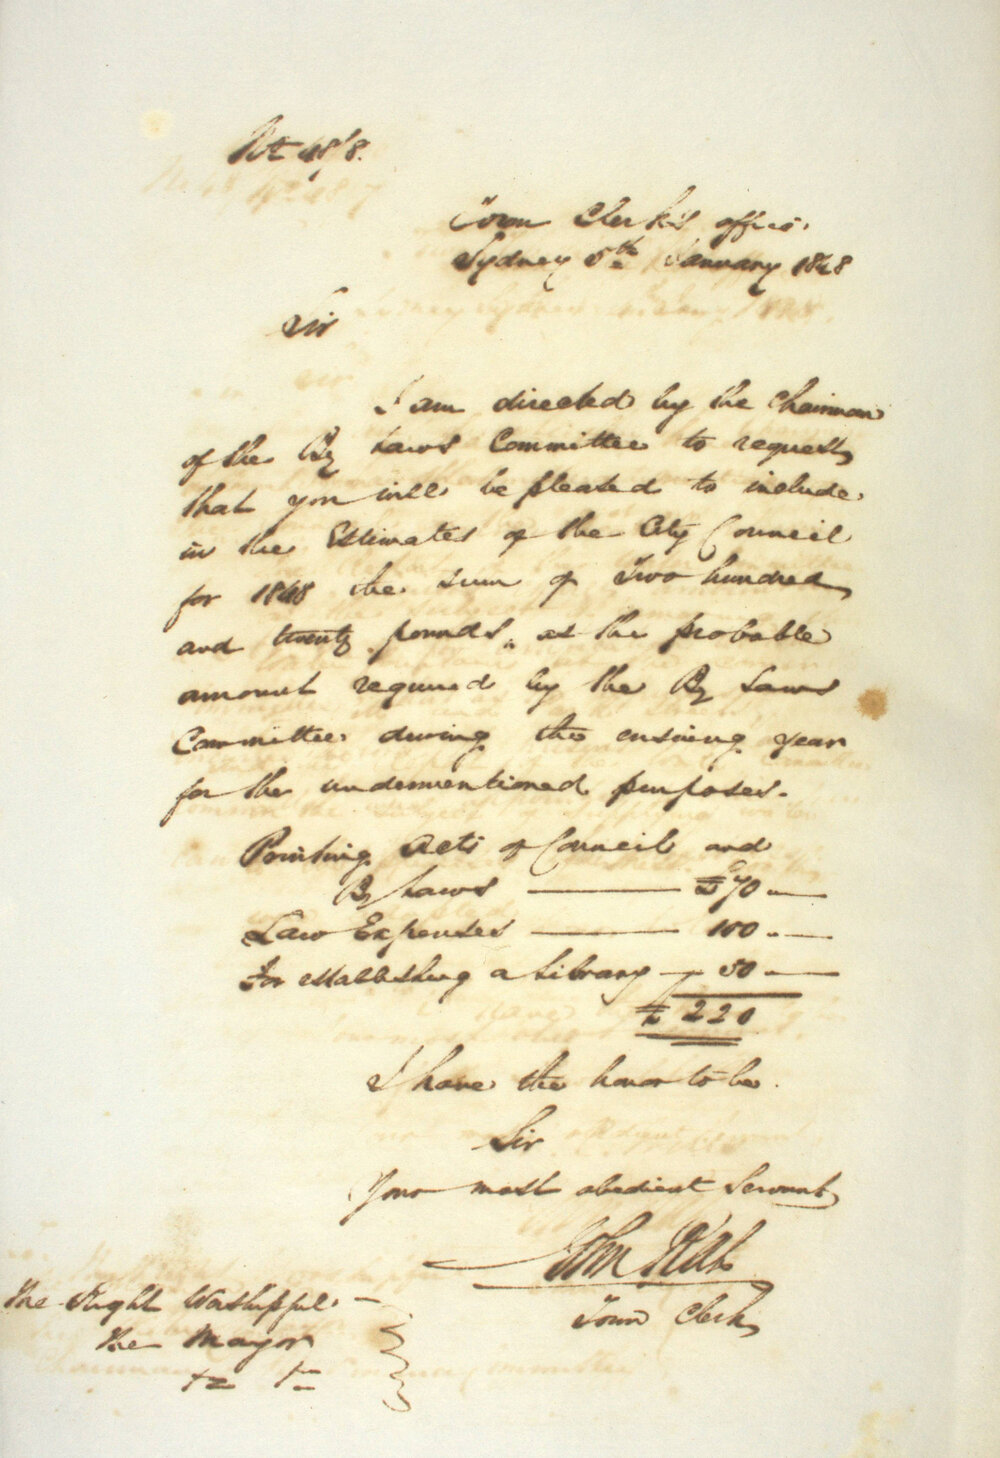 No 48/8.
Town Clerk's office.
Sydney 5th January 1848
Sir
I am directed by the Chairman
of the By Laws Committee to request
that you will be pleased to include
in the Estimates of the City Council
for 1848 the sum of Two hundred
and twenty pounds, as the probable
amount required by the By Laws
Committee during the ensuing year
for the undermentioned purposes.
Printing Acts of Council and
By Laws — £70 . —
Law Expenses — 100 . —
For establishing a Library — 50 . —
£ 220
I have the honor to be.
Sir
Your most obedient Servant
John
Town Clerk
The Right Worshipful —
the Mayor